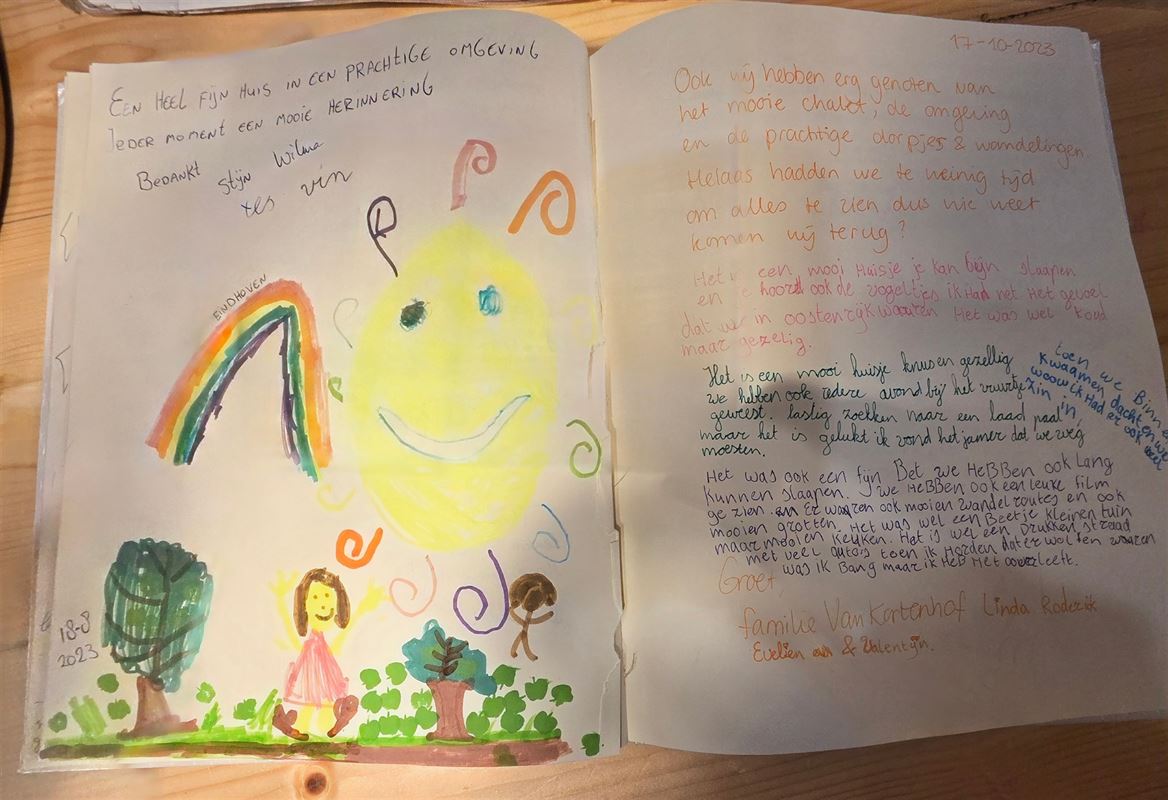 EEN HEEL FIJN HUIS IN EEN PRACHTIGE OMGEVING
IEDER MOMENT EEN MOOIE HERINNERING
BEDANKT stijn Wilma
vin
EINDHOVEN
18-8
2023
17-10-2023
Ook wij hebben erg genoten van
het mooie chalet, de omgeving
en de prachtige dorpjes & wandelingen
Helaas hadden we te weinig tijd
om alles te zien dus wie weet
komen wij terug?
Het is een mooi Huisje je kan fijn slaapen
en je hoord ook de vogeltjes ik Had net Het gevoel
dat we in oostenrijk waaren Het was wel koud
maar gezelig.
Het is een mooi huisje knus en gezellig
we hebben ook iedere avond bij het vuurtje
geweest. lastig zoekken naar een laad paal,
maar het is gelukt ik vond het jamer dat we weg
moesten.
toen we Binnen
kwaamen dacht en we
woow ik Had er ook veel
zin in
Het was ook een fijn Bet we HeBBen ook Lang
kunnen slaapen. we HeBBen ook een leuke film
ge zien. Er waaren ook mooien wandel routes en ook
mooien grotten. Het was wel een Beetje kleinen tuin
maar mooien keuken. Het is wel een Drukken straad
met veel auto's toen ik Horden dat er wolfen waaren
was ik Bang maar ik HeB Het overleeft.
Groet,
familie Van Kortenhof Linda Roderik
Evelien & Valentijn.